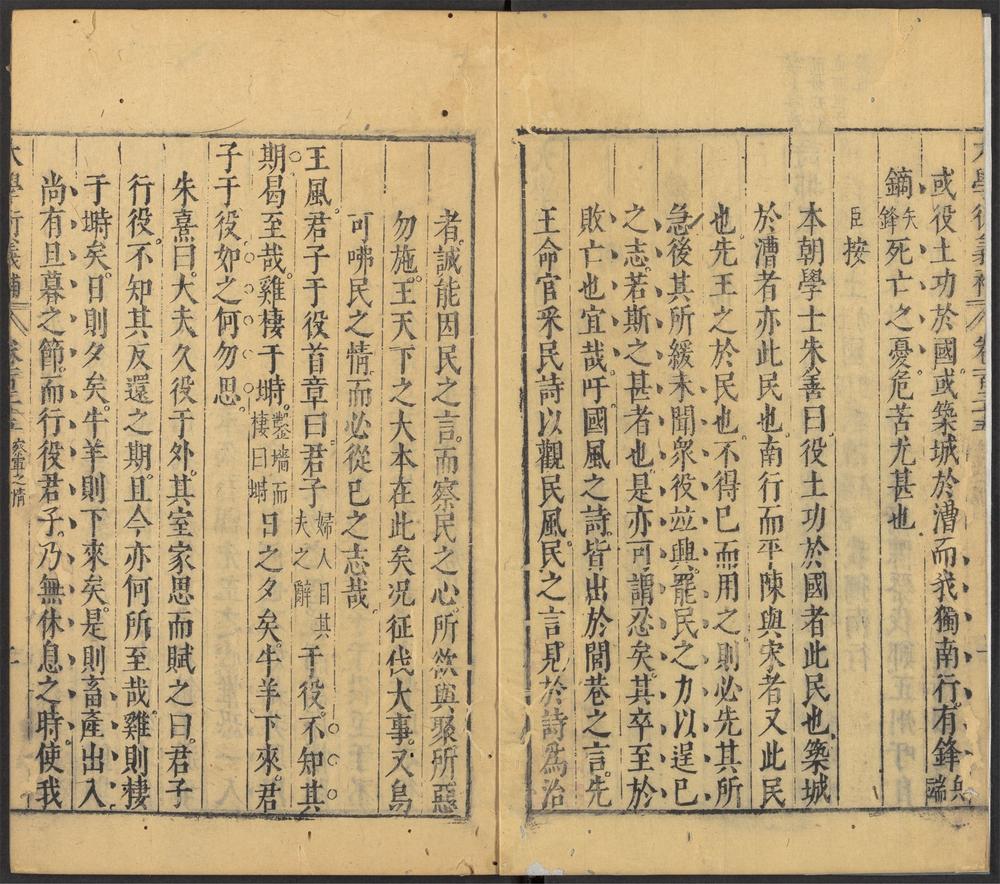 或役土功於國或築城於漕而我獨南行有鋒兵端
鏑矢鋒死亡之憂危苦尤甚也
臣按
本朝學士朱善曰役土功於國者此民也築城
於漕者亦此民也南行而平陳與宋者又此民
也先王之於民也不得已而用之則必先其所
急後其所緩未聞衆役並興罷民之力以逞己
之志若斯之甚者也是亦可謂忍矣其卒至於
敗亡也宜哉吁國風之詩皆出於閭巷之言先
王命官采民詩以觀民風民之言見於詩為治
者誠能因民之言而察民之心所欲與聚所惡
勿施王天下之大本在此矣况征伐大事又烏
可咈民之情而必從已之志哉
王風君子于役首章曰君子婦人目其夫之辭于役不知其
期曷至哉雞棲于塒鑿墻而棲曰塒日之夕矣牛羊下來君
子于役如之何勿思
朱熹曰大夫久役于外其室家思而賦之曰君子
行役不知其反還之期且今亦何所至哉雞則棲
于塒矣日則夕矣牛羊則下來矣是則畜產出入
尚有旦暮之節而行役君子乃無休息之時使我
大學衍義補